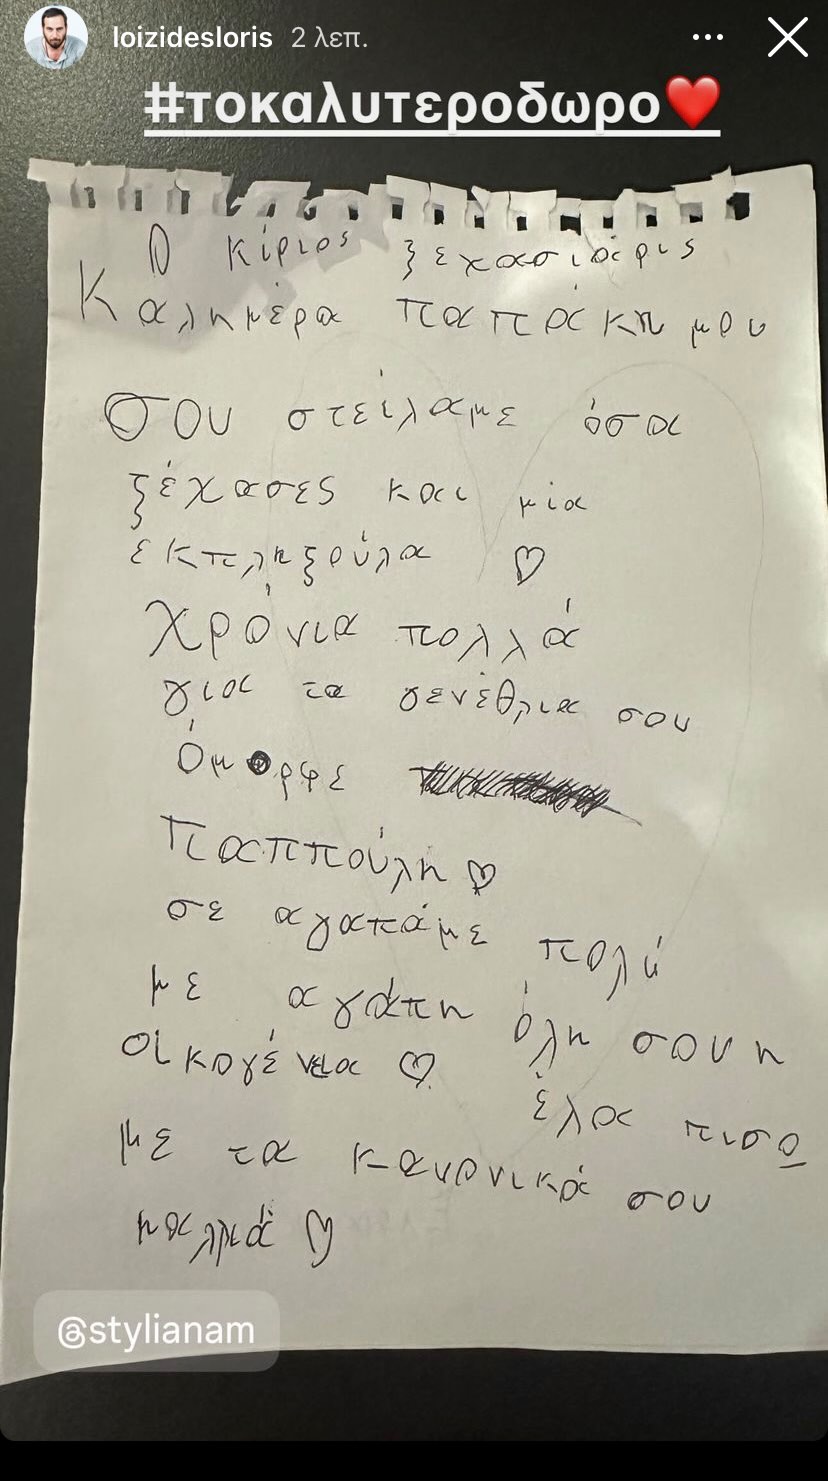 loizidesloris 2 λεπ.
#τοκαλυτεροδωρο❤️
Ο κίριος ξεχασιάρις
Καλημέρα παπάκη μου
Σου στείλαμε όσα
ξέχασες και μία
εκπληξούλα ♡
Χρόνια πολλά
για τα γενέθλια σου
Όμορφε
Παππούλη ♡
σε αγαπάμε πολύ
με αγάπη όλη σου η
οικογένεια ♡
έλα πισω
με τα κανονικά σου
μαλλιά ♡
@stylianam